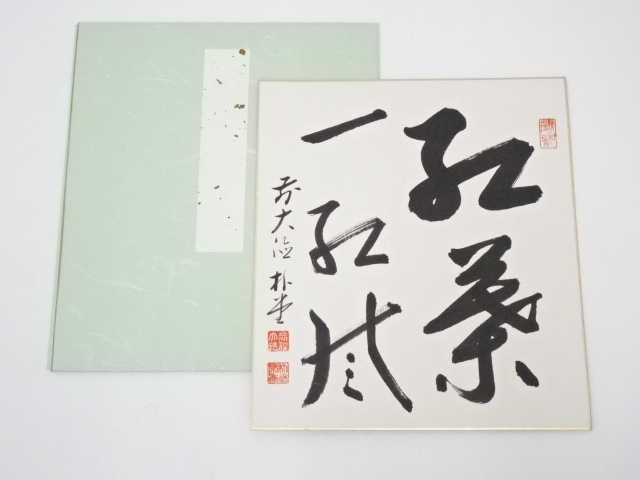 紅葉
一紅風
前大徳 朴堂